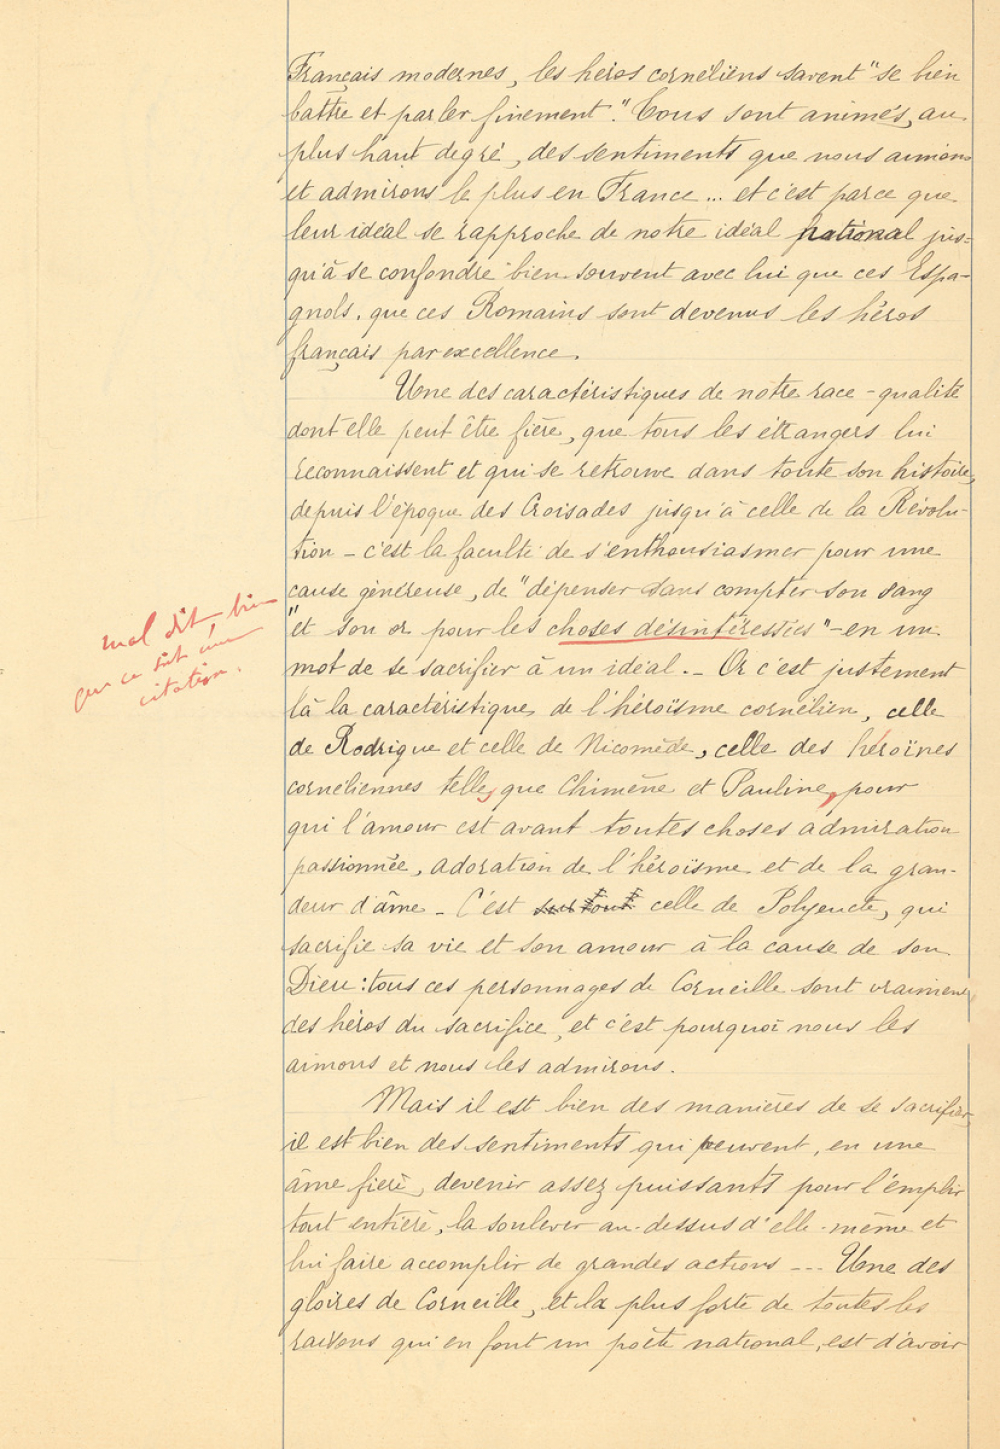 Français modernes, les héros cornéliens savent "se bien
battre et parler finement". Tous sont animés, au
plus haut degré, des sentiments que nous aimons
et admirons le plus en France... et c'est parce que
leur idéal se rapproche de notre idéal national jus-
qu'à se confondre bien souvent avec lui que ces Espa-
gnols, que ces Romains sont devenus les héros
français par excellence.
Une des caractéristiques de notre race - qualité
dont elle peut être fière, que tous les étrangers lui
reconnaissent et qui se retrouve dans toute son histoire,
depuis l'époque des Croisades jusqu'à celle de la Révolu-
tion - c'est la faculté de s'enthousiasmer pour une
cause généreuse, de "dépenser sans compter son sang
"et son or pour les choses désintéressées" - en un
mal dit, bien
que ce soit une
citation.
mot de se sacrifier à un idéal. - Or c'est justement
là la caractéristique de l'héroïsme cornélien, celle
de Rodrigue et celle de Nicomède, celle des héroïnes
cornéliennes telles que Chimène et Pauline, pour
qui l'amour est avant toutes choses admiration
passionnée, adoration de l'héroïsme et de la gran-
deur d'âme - C'est surtout celle de Polyeucte, qui
sacrifie sa vie et son amour à la cause de son
Dieu : tous ces personnages de Corneille sont vraiment
des héros du sacrifice, et c'est pourquoi nous les
aimons et nous les admirons.
Mais il est bien des manières de se sacrifier,
il est bien des sentiments qui peuvent, en une
âme fière, devenir assez puissants pour l'emplir
tout entière, la soulever au-dessus d'elle-même et
lui faire accomplir de grandes actions --- Une des
gloires de Corneille, et la plus forte de toutes les
raisons qui en font un poète national, est d'avoir